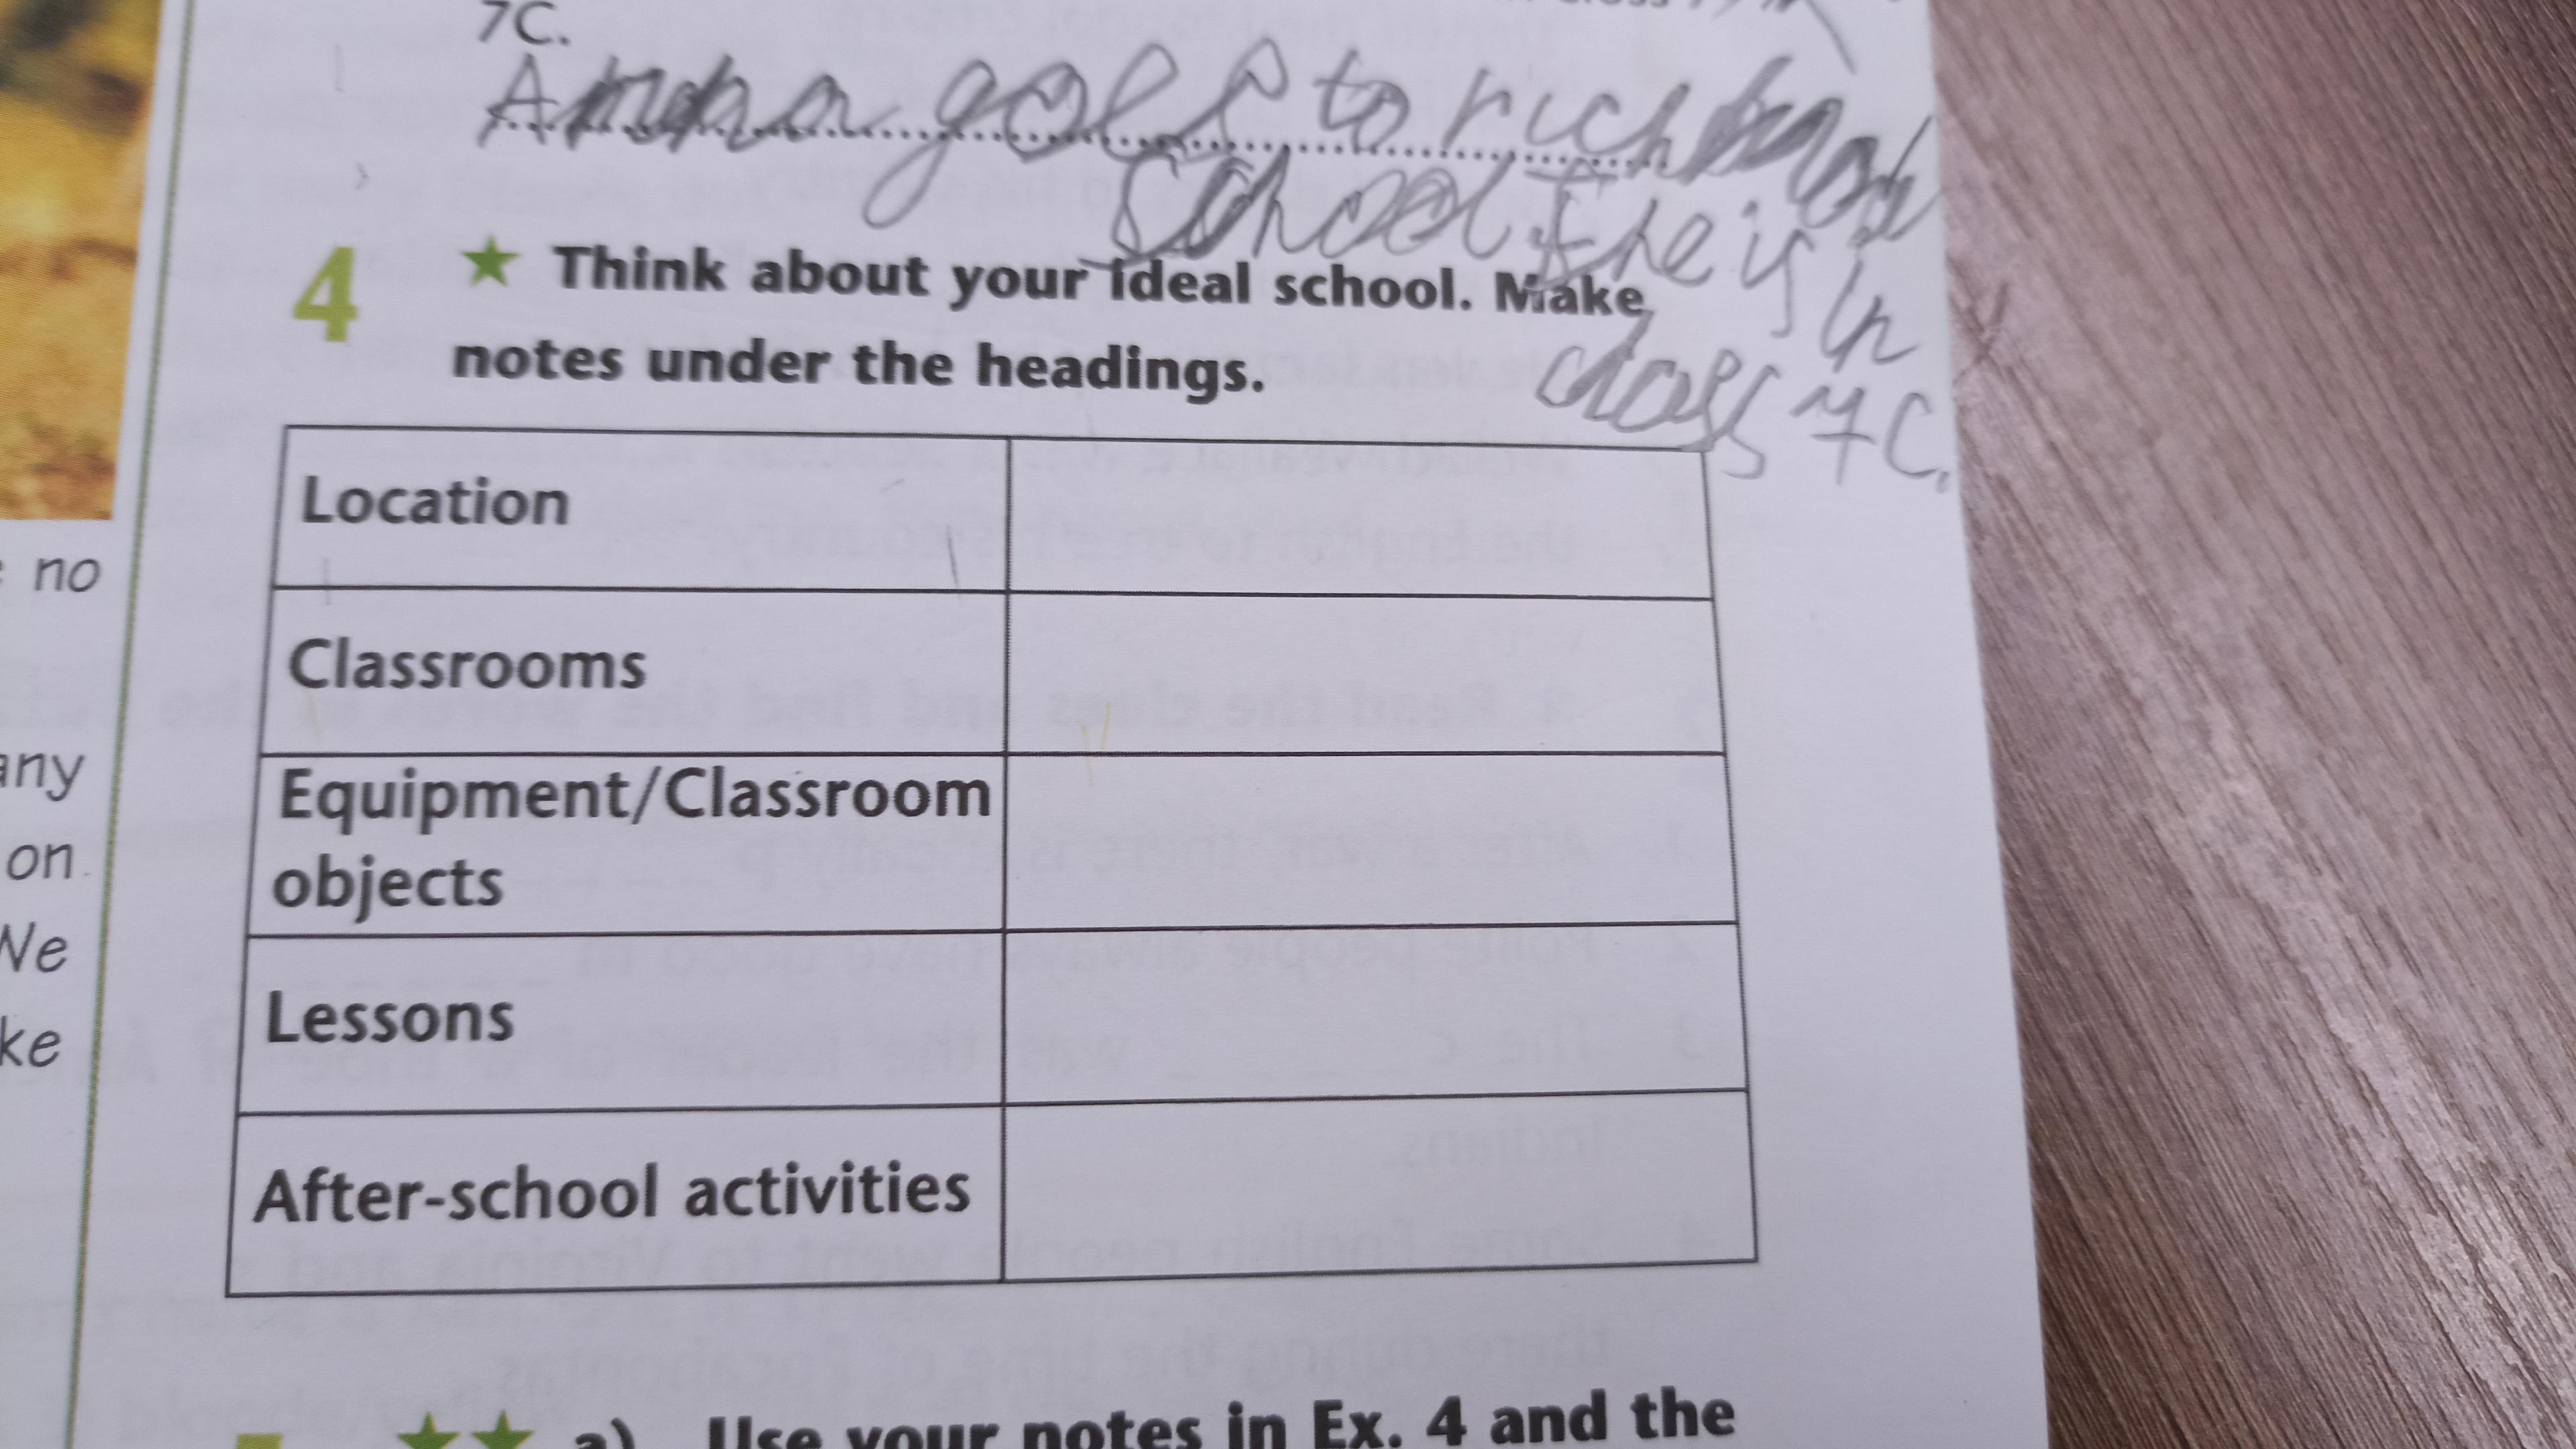 7C.
Anna goes to rich
school she is in
class 7C.
4 ★ Think about your ideal school. Make
notes under the headings.
Location
Classrooms
Equipment/Classroom
objects
Lessons
After-school activities
no
any
on
We
ke
★★ a) Use your notes in Ex. 4 and the